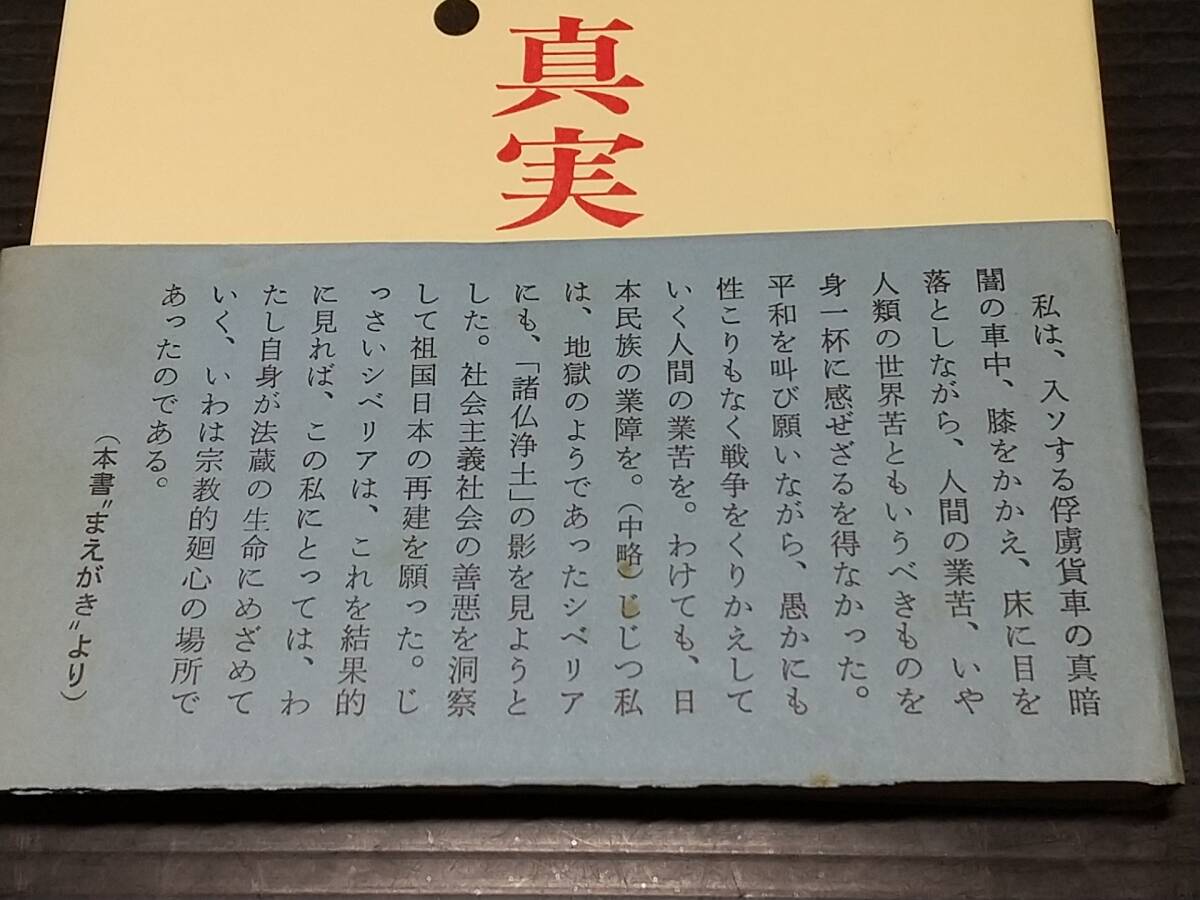 真実
私は、入ソする俘虜貨車の真暗
闇の車中、膝をかかえ、床に目を
落としながら、人間の業苦、いや
人類の世界苦ともいうべきものを
身一杯に感ぜざるを得なかった。
平和を叫び願いながら、愚かにも
性こりもなく戦争をくりかえして
いく人間の業苦を。わけても、日
本民族の業障を。(中略)じじつ私
は、地獄のようであったシベリア
にも、「諸仏浄土」の影を見ようと
した。社会主義社会の善悪を洞察
して祖国日本の再建を願った。じ
っさいシベリアは、これを結果的
に見れば、この私にとっては、わ
たし自身が法蔵の生命にめざめて
いく、いわは宗教的廻心の場所で
あったのである。
(本書〝まえがき〟より)